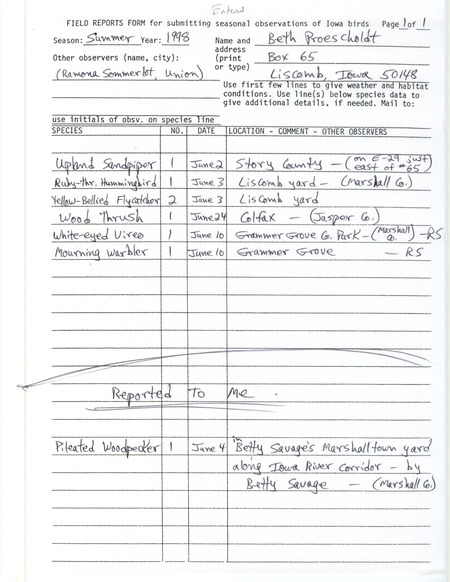 Entered
FIELD REPORTS FORM for submitting seasonal observations of Iowa birds Page 1 of 1
Season: Summer Year: 1998 Name and address (print or type) Beth Proescholdt
Other observers (name, city): Box 65
(Ramona Sommerlot, Union) Liscomb, Iowa 50148
Use first few lines to give weather and habitat
conditions. Use line(s) below species data to
give additional details, if needed. Mail to:
use initials of obsv. on species line
SPECIES NO. DATE LOCATION - COMMENT - OTHER OBSERVERS
Upland Sandpiper 1 June 2 Story County - (on E-29 just east of #65)
Ruby-thr. Hummingbird 1 June 3 Liscomb yard - (Marshall Co.)
Yellow-Bellied Flycatcher 2 June 3 Liscomb yard
Wood Thrush 1 June 24 Colfax - (Jasper Co.)
White-eyed Vireo 1 June 10 Grammer Grove Co. Park - (Marshall Co.) - RS
Mourning Warbler 1 June 10 Grammer Grove - RS
Reported To Me
Pileated Woodpecker 1 June 4 in Betty Savage's Marshalltown yard
along Iowa River Corridor - by
Betty Savage - (Marshall Co.)